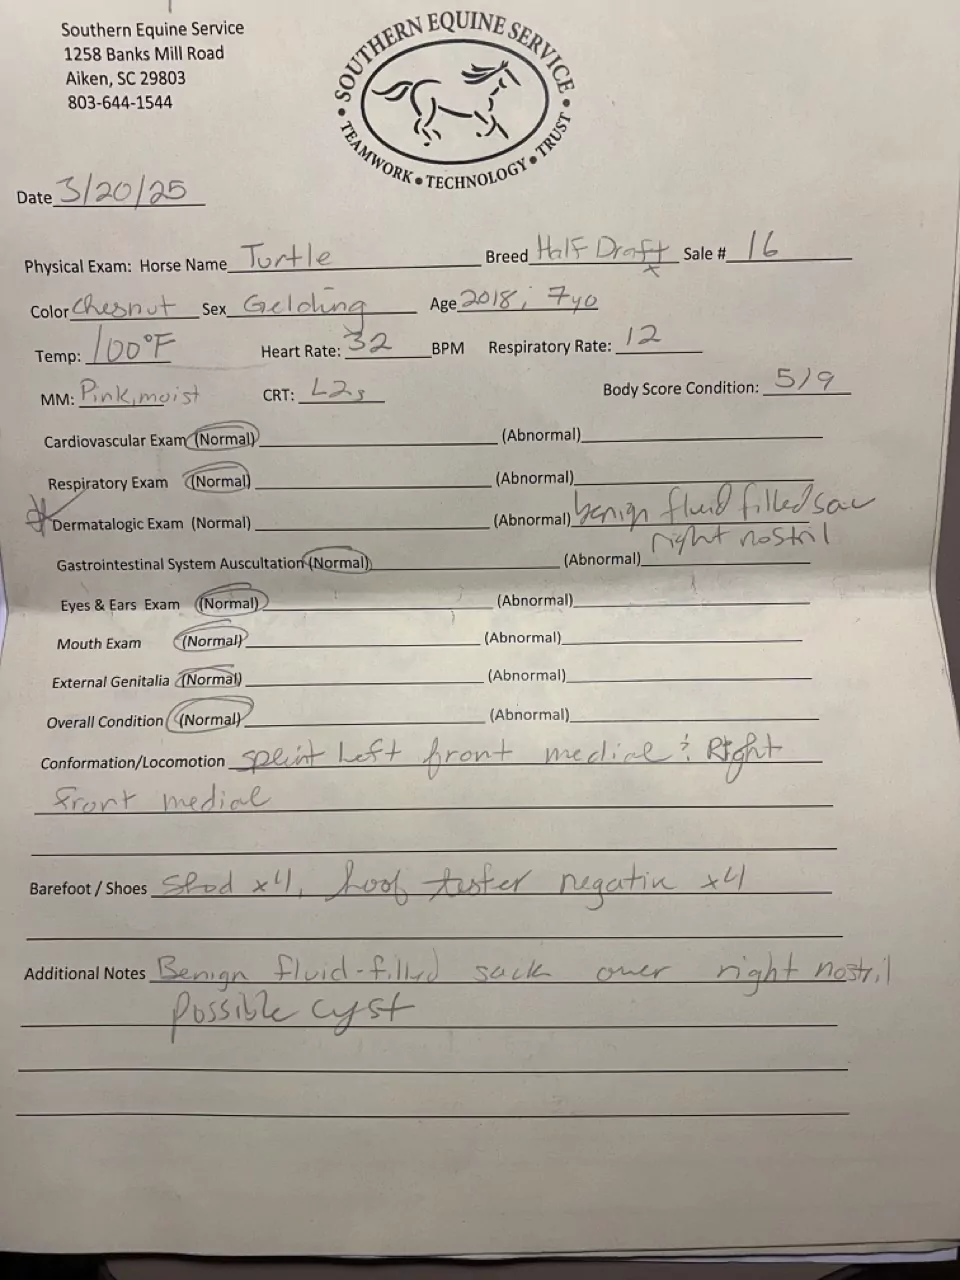 Southern Equine Service
1258 Banks Mill Road
Aiken, SC 29803
803-644-1544
SOUTHERN EQUINE SERVICE
• TEAMWORK • TECHNOLOGY • TRUST •
Date 3/20/25
Physical Exam: Horse Name Turtle Breed Half Draft Sale # 16
x
Color Chesnut Sex Gelding Age 2018, 7yo
Temp: 100°F Heart Rate: 32 BPM Respiratory Rate: 12
MM: Pink, moist CRT: L2s Body Score Condition: 5/9
Cardiovascular Exam (Normal) (Abnormal)
Respiratory Exam (Normal) (Abnormal)
Dermatalogic Exam (Normal) (Abnormal) benign fluid filled sac
right nostril
Gastrointestinal System Auscultation (Normal) (Abnormal)
Eyes & Ears Exam (Normal) (Abnormal)
Mouth Exam (Normal) (Abnormal)
External Genitalia (Normal) (Abnormal)
Overall Condition (Normal) (Abnormal)
Conformation/Locomotion splint Left front medial & Right
front medial
Barefoot / Shoes Shod x4, hoof tester negative x4
Additional Notes Benign fluid-filled sack over right nostril
possible cyst